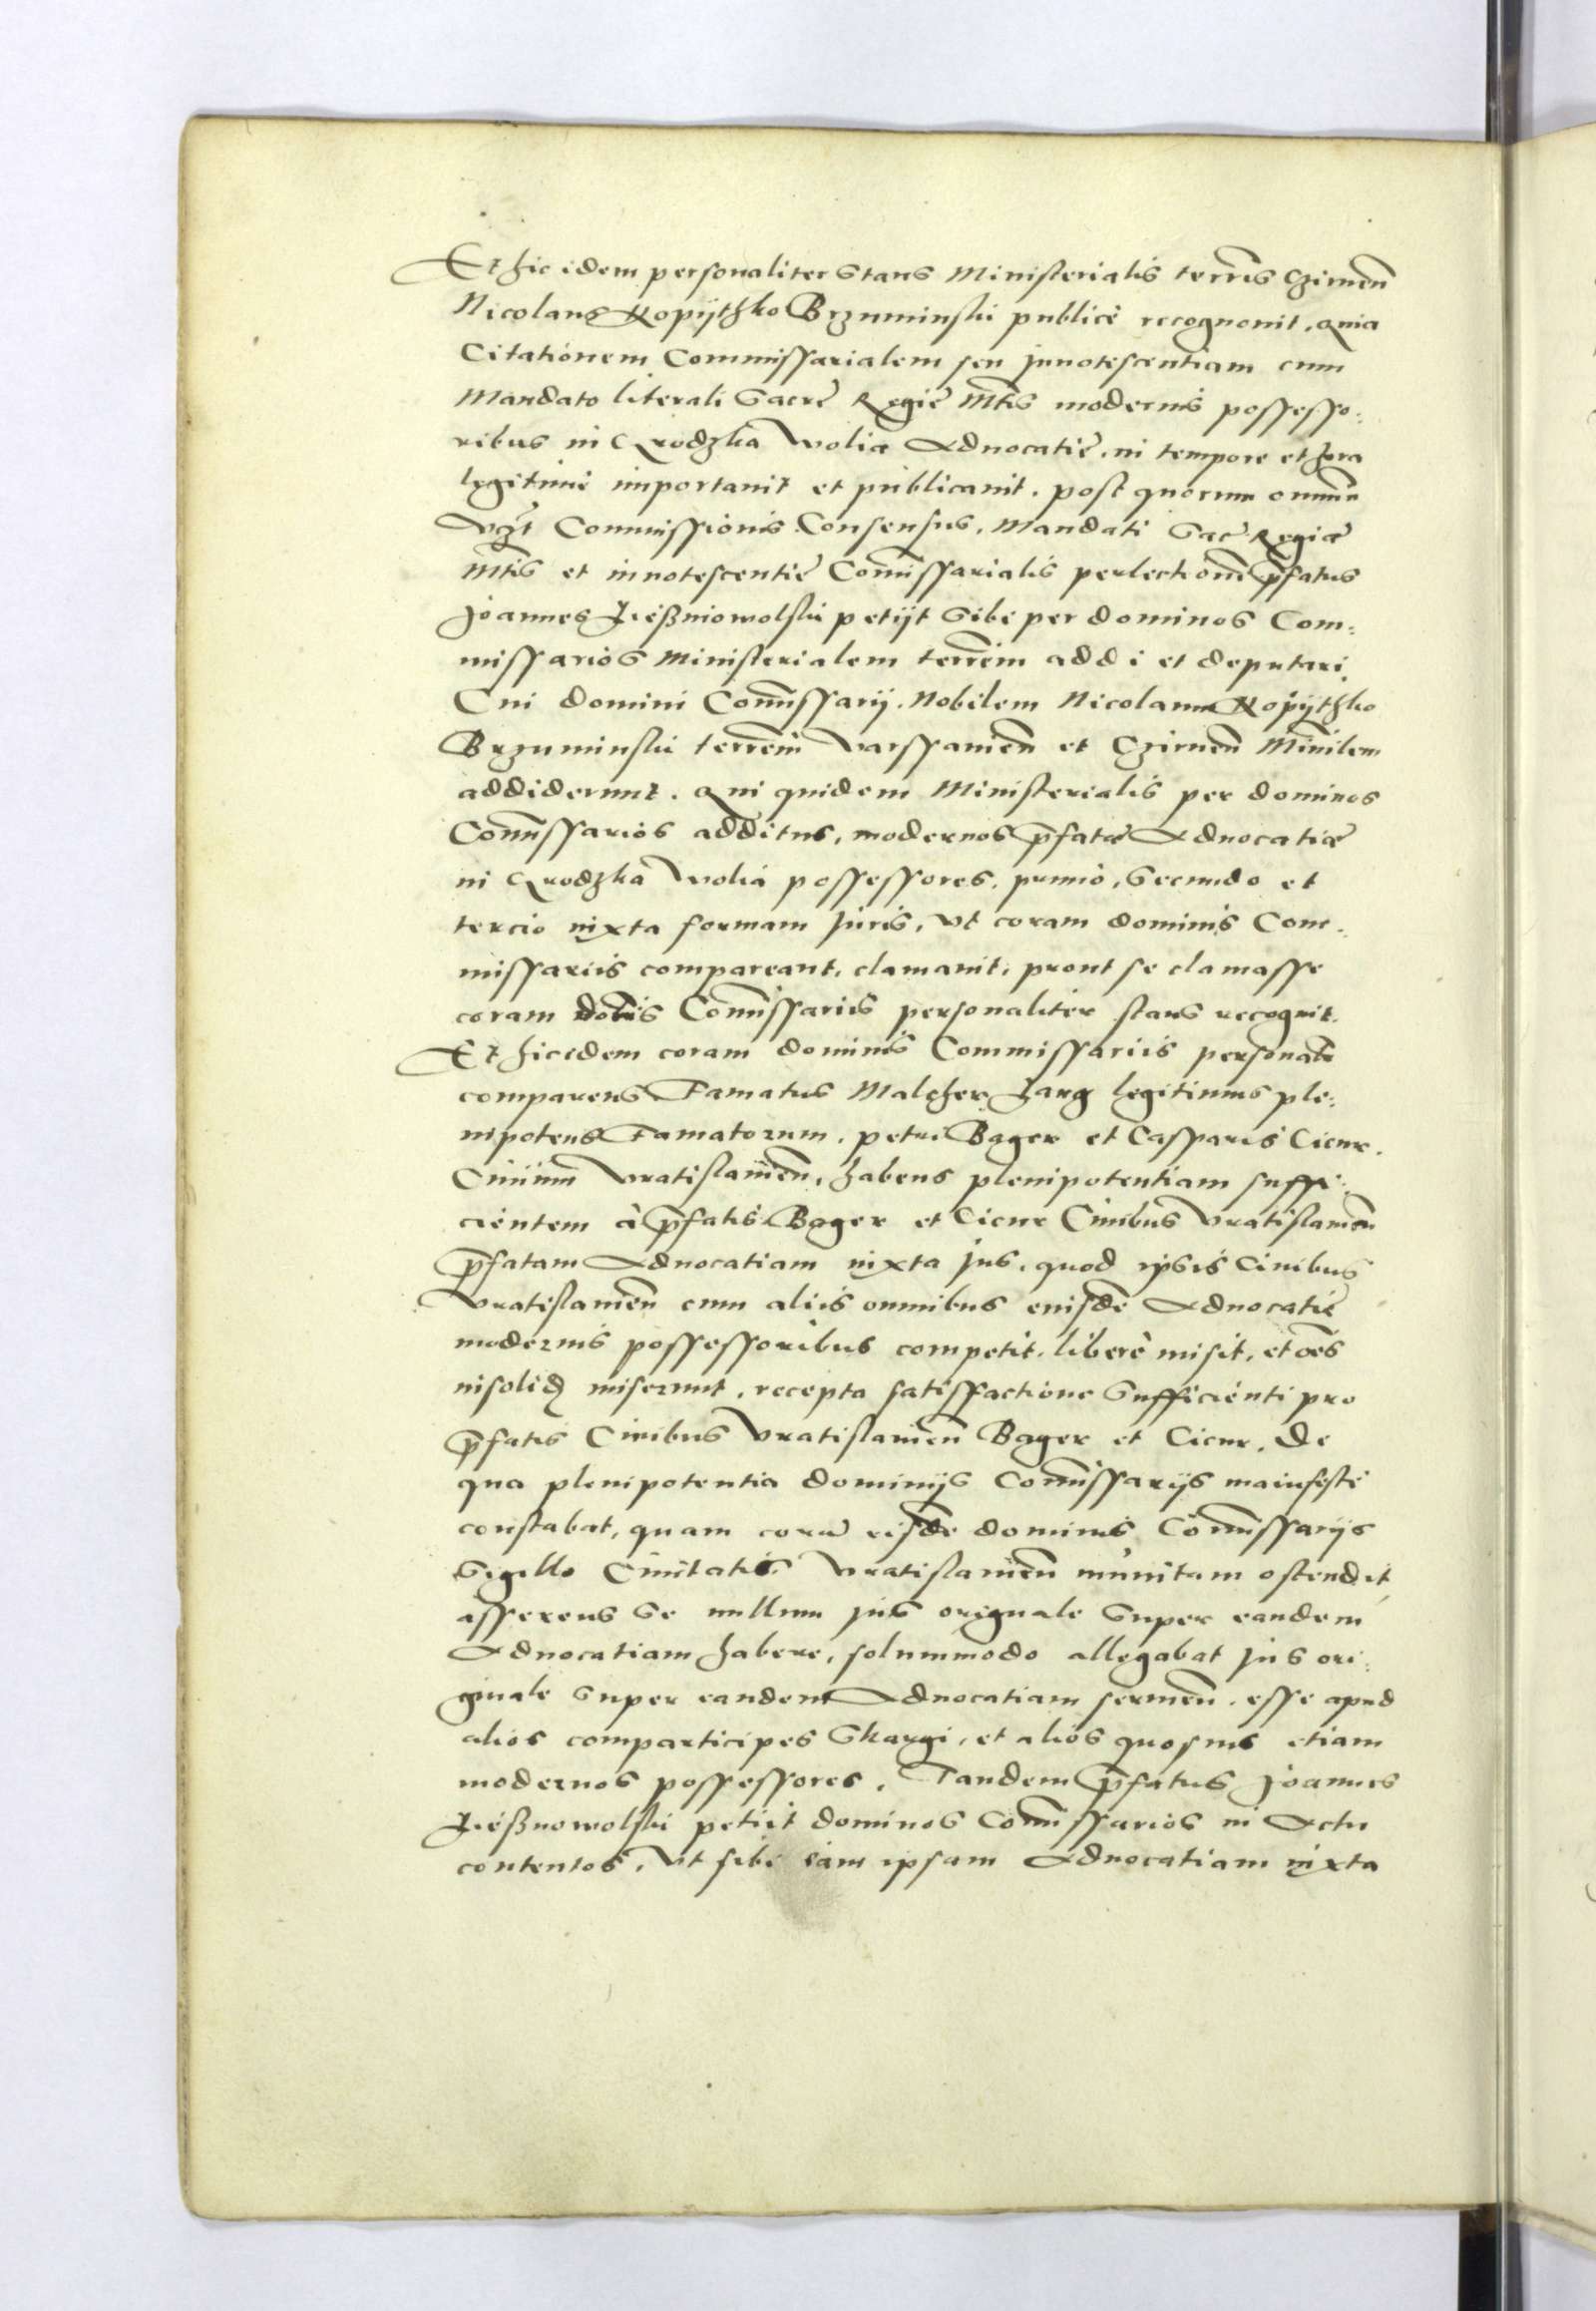 Et hic idem personaliter stans Ministerialis terres̄ Czirnen̄
Nicolaus Kopijthko Brzuminski publicè recognouit, quia
Citationem Commissarialem seu Innotescentiam cum
Mandato literali Sacrę Regię Mt̄is modernis possesso:
ribus in Grodzka Wolia Aduocatię, in tempore et hora
legitimè importauit et publicauit. post quorum omniū
vz̄t Commissionis Consensus, Mandati Sac̄ Regiæ
Mt̄is et innotescentię Com̄issarialis perlectionē p̄fatus
Joannes Jeßniowolski petijt sibi per dominos Com:
missarios Ministerialem terrēm addi et deputari.
Cui domini Com̄issarij. Nobilem Nicolaum Kopijthko
Brzuminski terrēm Varssauien̄ et Czirnen̄ Minīlem
addiderunt. Qui quidem Ministerialis per dominos
Com̄issarios additus, modernos p̄fatæ Aduocatiæ
in Grodzka Wolia possessores, primò, secundo et
tercio iuxta formam Iuris, vt coram dominis Com:
missariis compareant, clamauit, prout se clamasse
coram dom̄is Com̄issariis personaliter stans recognit.
Et hic idem coram dominis Commissariis personalr̄
comparens Famatus Malcher Jarig legitimus ple:
nipotens Famatorum, petri Bager et Casparis Cieur.
Ciuium Vratislauien̄, habens plenipotentiam suffi:
cientem à p̄fatis Bager et Cieur Ciuibus Vratislauien̄
p̄fatam Aduocatiam iuxta Jus, quod ipsis Ciuibus
Vratislauien̄ cum aliis omnibus eiusdē Aduocatię
modernis possessoribus competit, liberè misit, et oēs
insolid miserunt, recepta satisfactione sufficienti pro
p̄fatis Ciuibus Vratislauien̄ Bager et Cieur. De
qua plenipotentia dominijs Com̄issarijs manifestè
constabat, quam corā eisdē dominis Com̄issarijs
Sigillo Ciuitatis Vratislauien̄ munitam ostendit,
asserens se nullum Jus originale super eandem
Aduocatiam habere, solummodo allegabat Jus ori:
ginale super eandem Aduocatiam sermen̄. esse apud
alios comparticipes Skargi, et alios quosuis etiam
modernos possessores. Tandem p̄fatus Joannes
Jeßnowolski petiit dominos Com̄issarios in Actu
contentos, vt sibi eam ipsam Aduocatiam iuxta